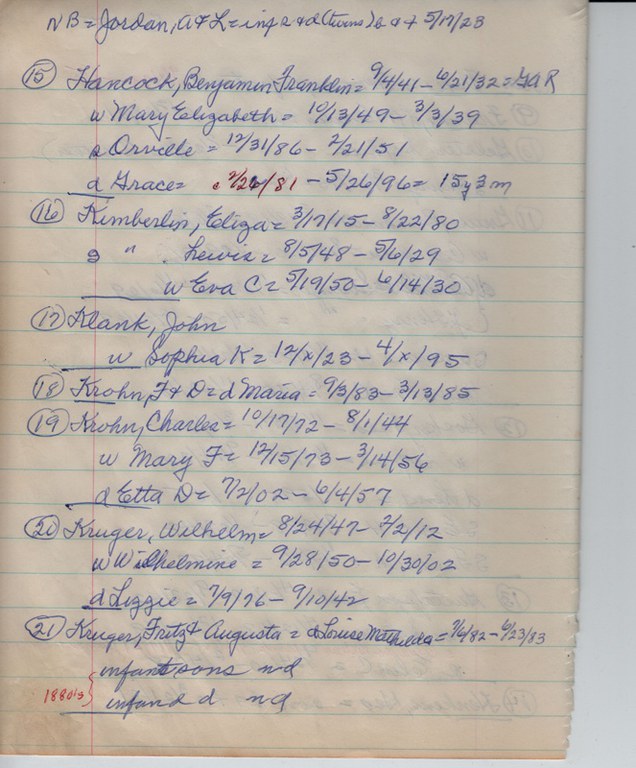 NB = Jordan, A & L = inf s & d (twins) b & + 5/17/23
15 Hancock, Benjamin Franklin = 9/4/41 - 6/21/32 = GAR
w Mary Elizabeth = 10/13/49 - 3/3/39
s Orville = 12/31/86 - 2/21/51
d Grace = 2/26/81 - 5/26/96 = 15y3m
16 Kimberlin, Eliza = 3/17/15 - 8/22/80
s " Lewis = 8/5/48 - 5/6/29
w Eva C = 5/19/50 - 6/14/30
17 Klank, John
w Sophia K = 12/x/23 - 4/x/95
18 Krohn, F & D = d Maria = 9/3/83 - 3/13/85
19 Krohn, Charles = 10/17/72 - 8/1/44
w Mary F = 12/15/73 - 3/14/56
d Etta D = 7/2/02 - 6/4/57
20 Kruger, Wilhelm = 8/24/47 - 2/2/12
w Wilhelmine = 9/28/50 - 10/30/02
d Lizzie = 7/9/76 - 9/10/42
21 Kruger, Fritz & Augusta = d Louise Mathilda = 7/6/82 - 6/23/83
infant sons nd
1880's infant d nd